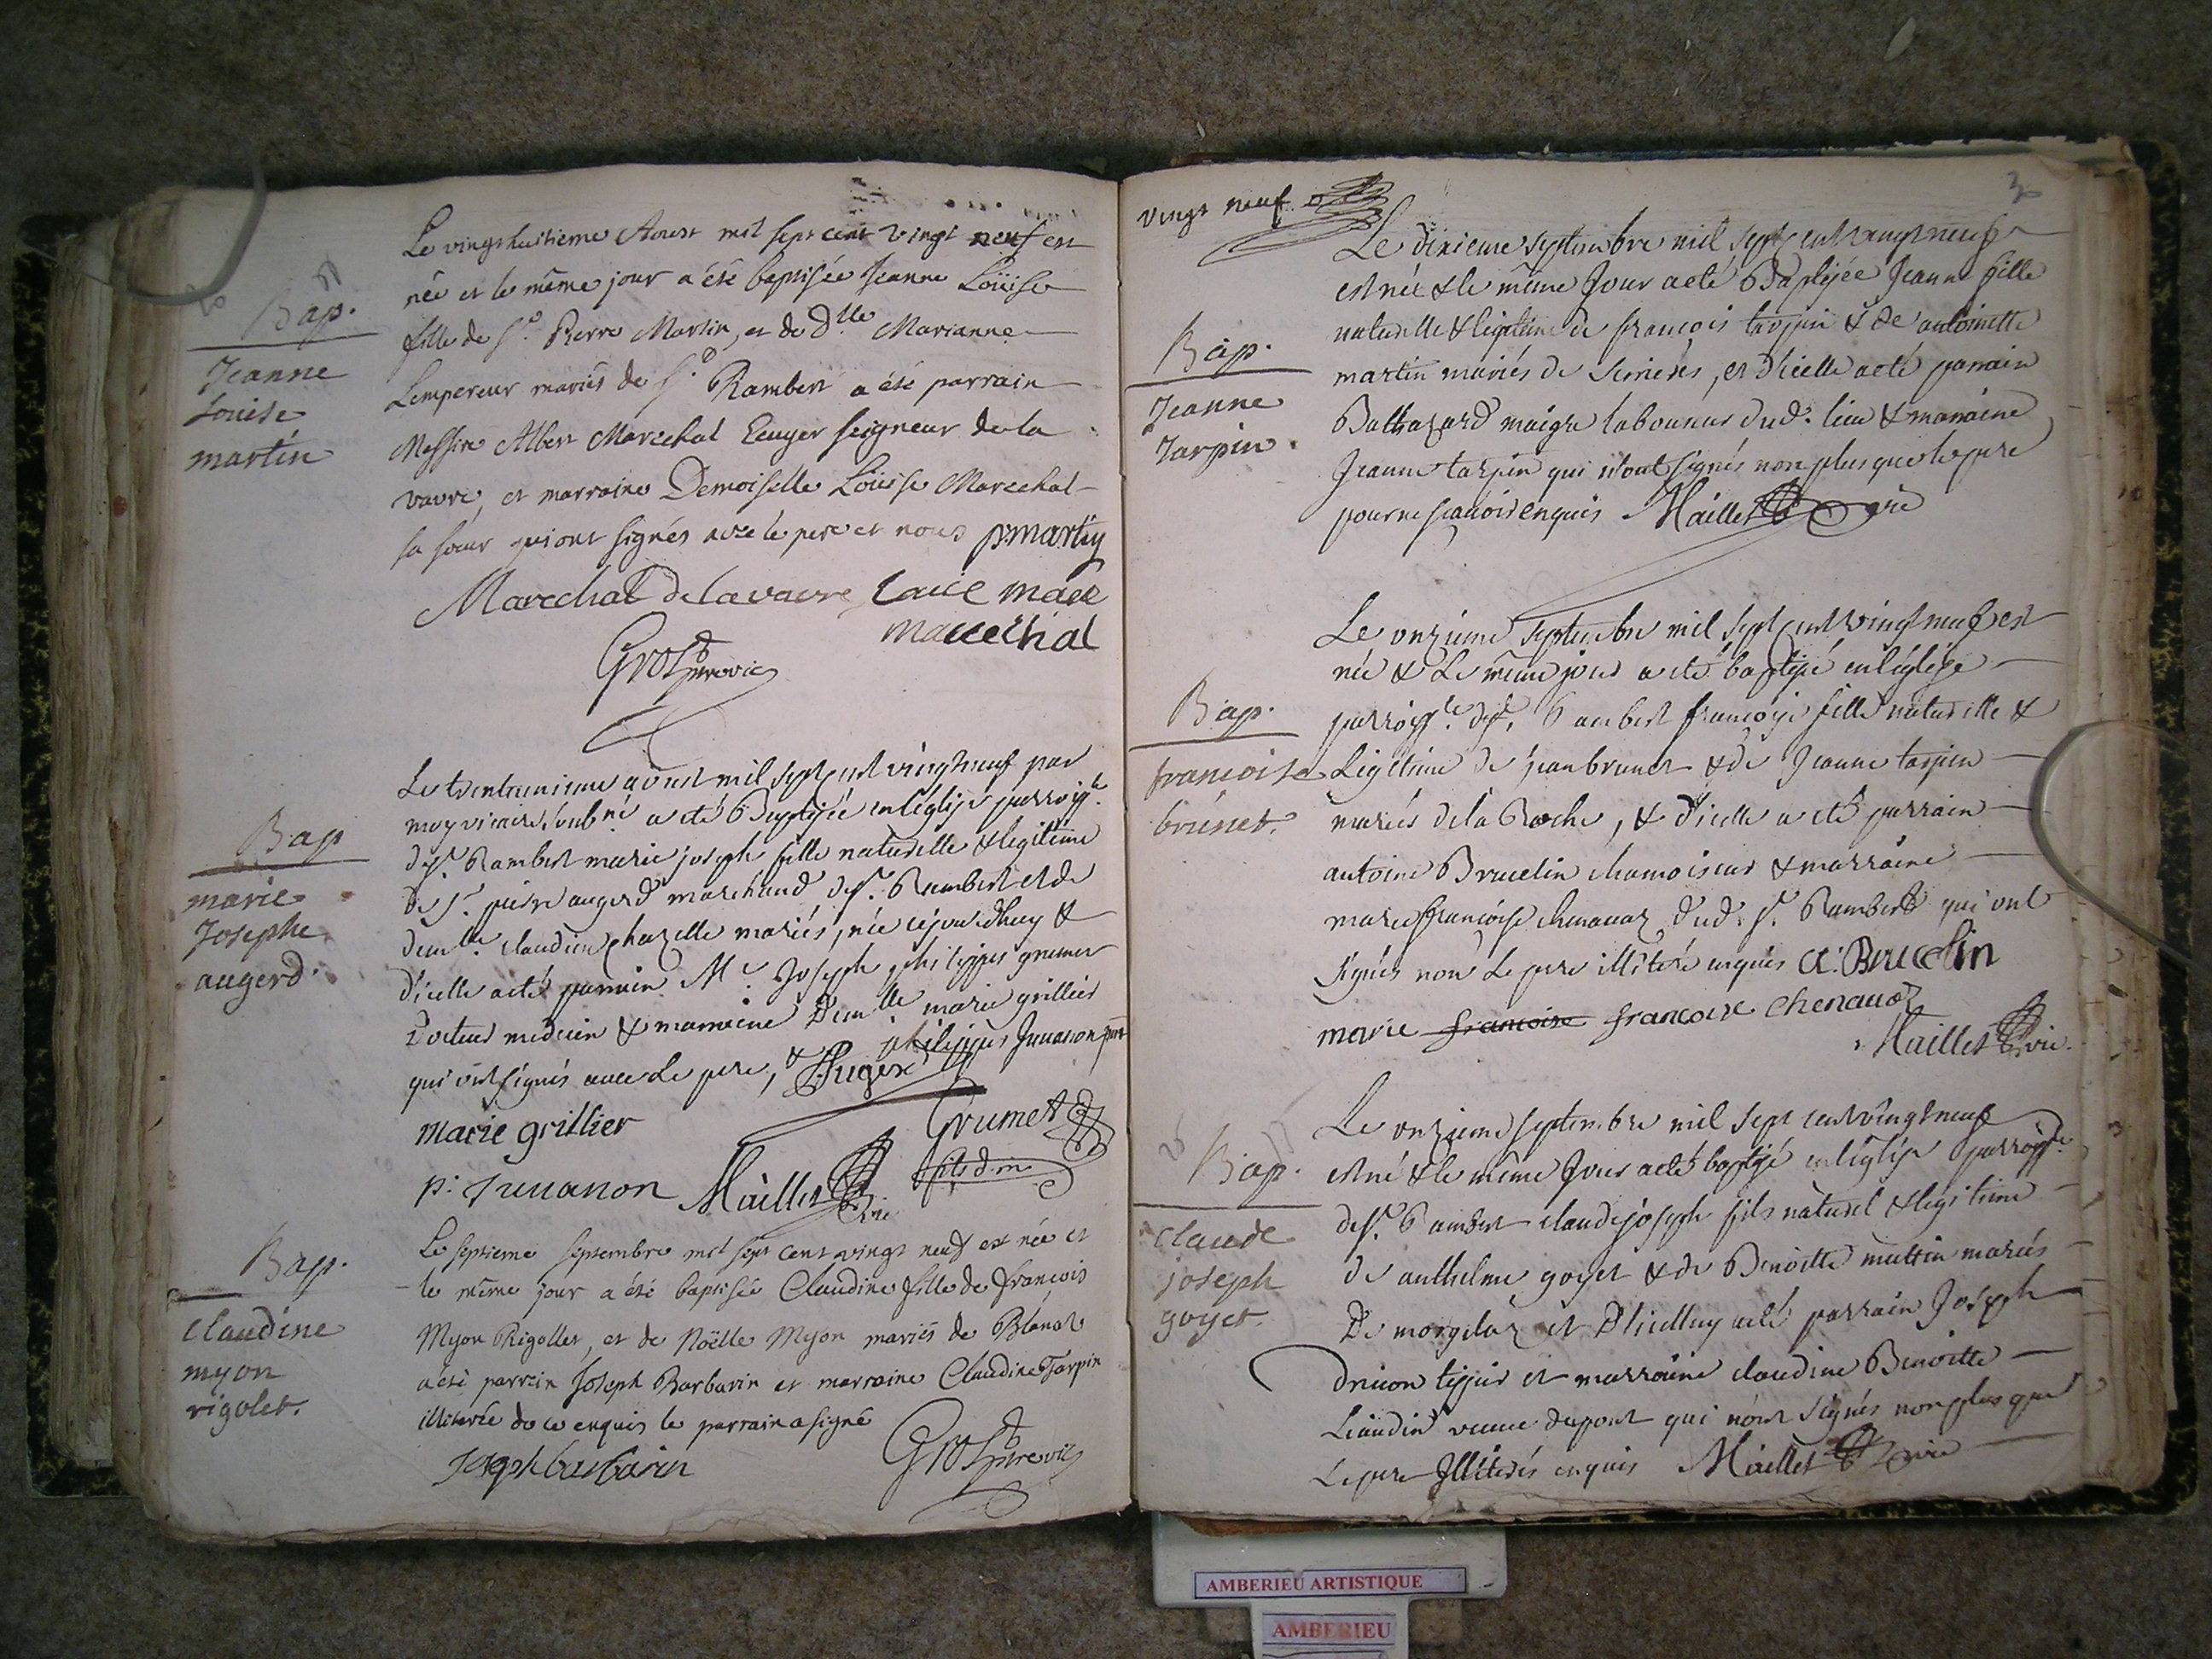 Bap.
Jeanne
Louise
martin
Le vingt huitieme Aoust mil sept cent vingt neuf est
née et le même jour a été baptisée Jeanne Loüise
fille de Sr. Pierre Martin, et de Dlle Marianne
Lempereur mariés de St. Rambert a été parrain
Messire Albert Marechal Ecuyer seigneur de la
vavre, et marraine Demoiselle Loüise Marechal
sa sœur qui ont signés avec le pere et nous p martin
Marechal de la vavre
marechal
Bap
marie
Josephe
augerd.
Le trentunieme aoust mil sept cent vingt neuf par
moy vicaire soubné a eté Baptisée en léglise parroisle
de St. Rambert marie joseph fille naturelle & legitime
de Sr. pierre augerd marchand de St. Rambert et de
demlle. claudine chazelle mariés, née cejourdhuy &
d'icelle a eté parrain Mr. Joseph philippes grumet
docteur medecin & marraine Demlle marie grillier
qui ont signés avec Le pere, & philippes Juvanon
marie grillier
Grumet
p. Juvanon Maillet vic
Bap.
claudine
myon
rigolet.
Le septieme septembre mil sept cent vingt neuf est née et
le même jour a été baptisée Claudine fille de françois
Myon Rigollet, et de Noëlle Myon mariés de Blanat
a été parrein Joseph Barbarin et marraine Claudine Tarpin
illiterée de ce enquis le parrain a signé
Joseph barbarin
vingt neuf
Bap.
Jeanne
Tarpin.
Le dixieme septembre mil sept cent vingt neuf
est née & le même Jour a eté Baptisée Jeanne fille
naturelle & legitime de francois tarpin & de antoinette
martin mariés de Serrieres, et d'icelle a eté parrain
Balthazard maigre laboureur dud. lieu & marraine
Jeanne tarpin qui n'ont signés non plus que le pere
pour ne scavoir enquis Maillet vic
Bap.
francoise
brunet.
Le onzieme septembre mil sept cent vingt neuf est
née & Le même jour a eté baptisé en léglise
parroissle. de St. Rambert françoise fille naturelle &
Legitime de jean brunet & de Jeanne tarpin
mariés de la Roche, & d'icelle a eté parrain
antoine Brucelin chamoiseur & marraine
marie françoise chenavaz dud. St. Rambert qui ont
signés non Le pere illiteré enquis A: Brucelin
marie francoise francoise chenavaz
Maillet vic.
Bap.
claude
joseph
goyet.
Le onzieme septembre mil sept cent vingt neuf
est né & le même Jour a eté baptisé en léglise parroissle
de St. Rambert claude joseph fils naturel & legitime
de anthelme goyet & de Benoitte muttin mariés
De morgelaz et D'icelluy a eté parrain Joseph
Druon tissier et marraine claudine Benoitte
Liaudin veuve dupont qui n'ont signés non plus que
Le pere Illiterés enquis Maillet vic
AMBERIEU ARTISTIQUE
AMBERIEU